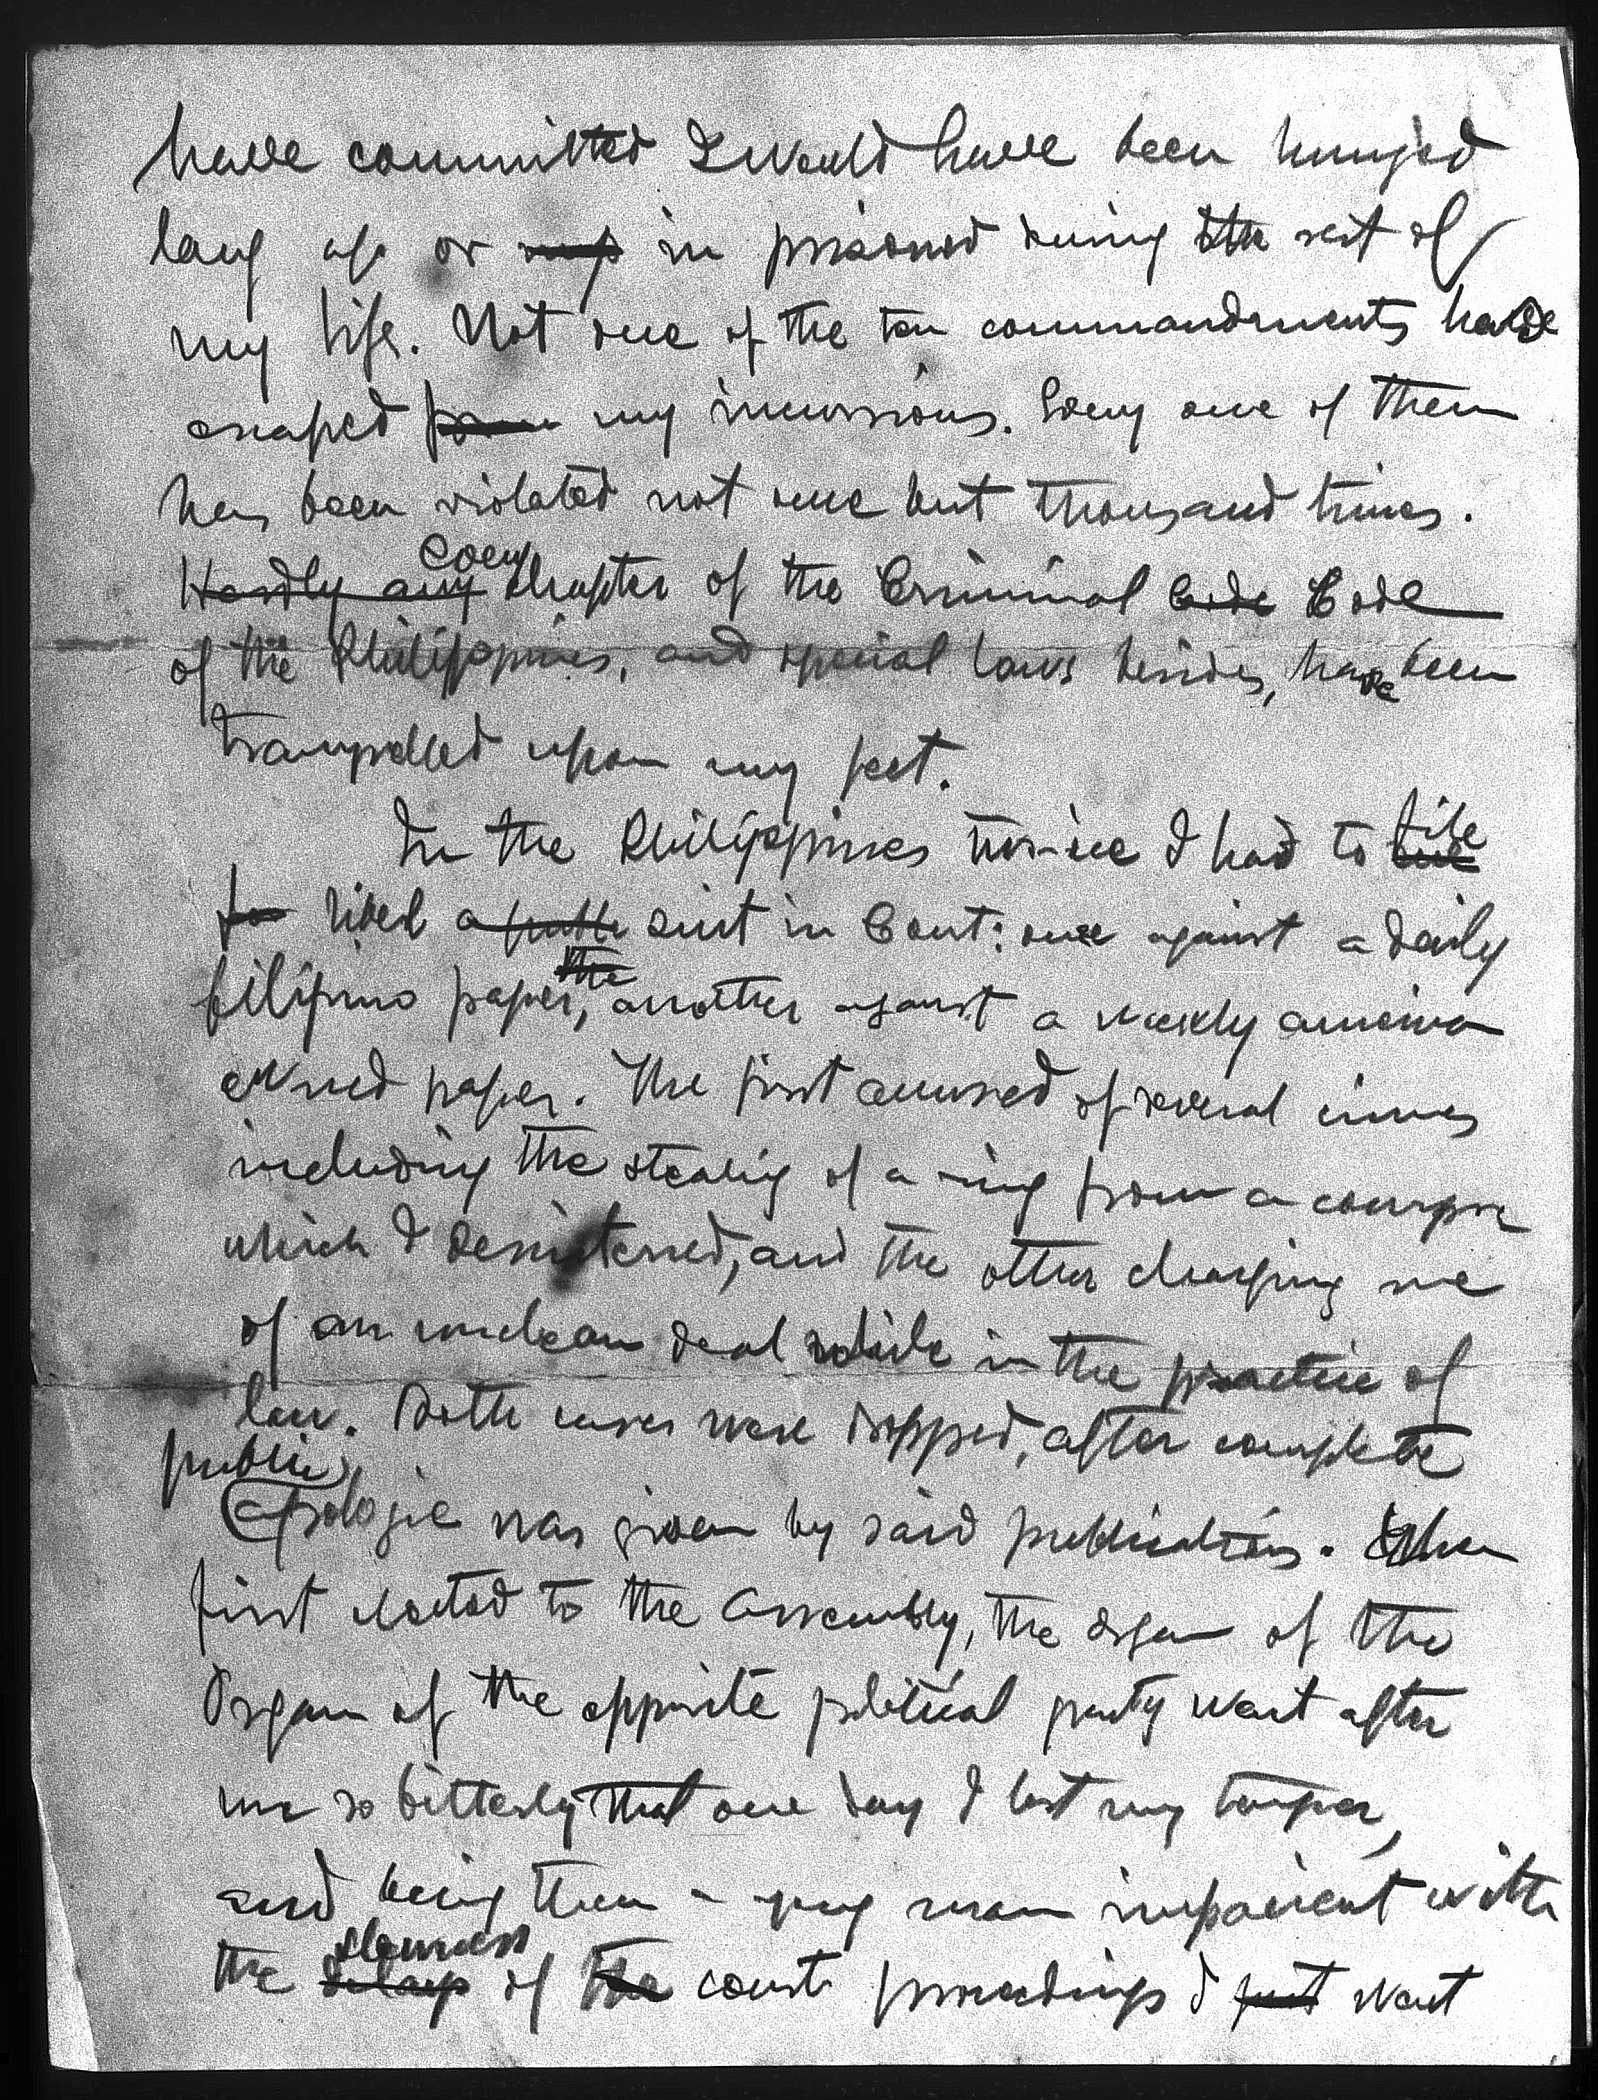 have committed I would have been hunged
long ago or in prisoned during the rest of
my life. Not one of the ten commandments have
escaped from my incursions. Every one of them
has been violated not one but thousand times.
Hardly any Every chapter of the Criminal Code Code
of the Philippines, and special laws besides, have been
trampelled upon my feet.
In the Philippines twice I had to file
for libel a suit in Court: one against a daily
filipino paper, the another against a weekly american
owned paper. The first accused of several crimes
including the stealing of a ring from a courpse
which I desinterred, and the other charging me
of an unclean deal while in the practice of
law. Both cases were dropped, after complete
public
apologie was given by said publications. When
first elected to the Assembly, the organ of the
Organ of the opposite political party went after
me so bitterly that one day I lost my temper,
and being then a yung man impacient with
the delays slowness of the courts proceedings I just went